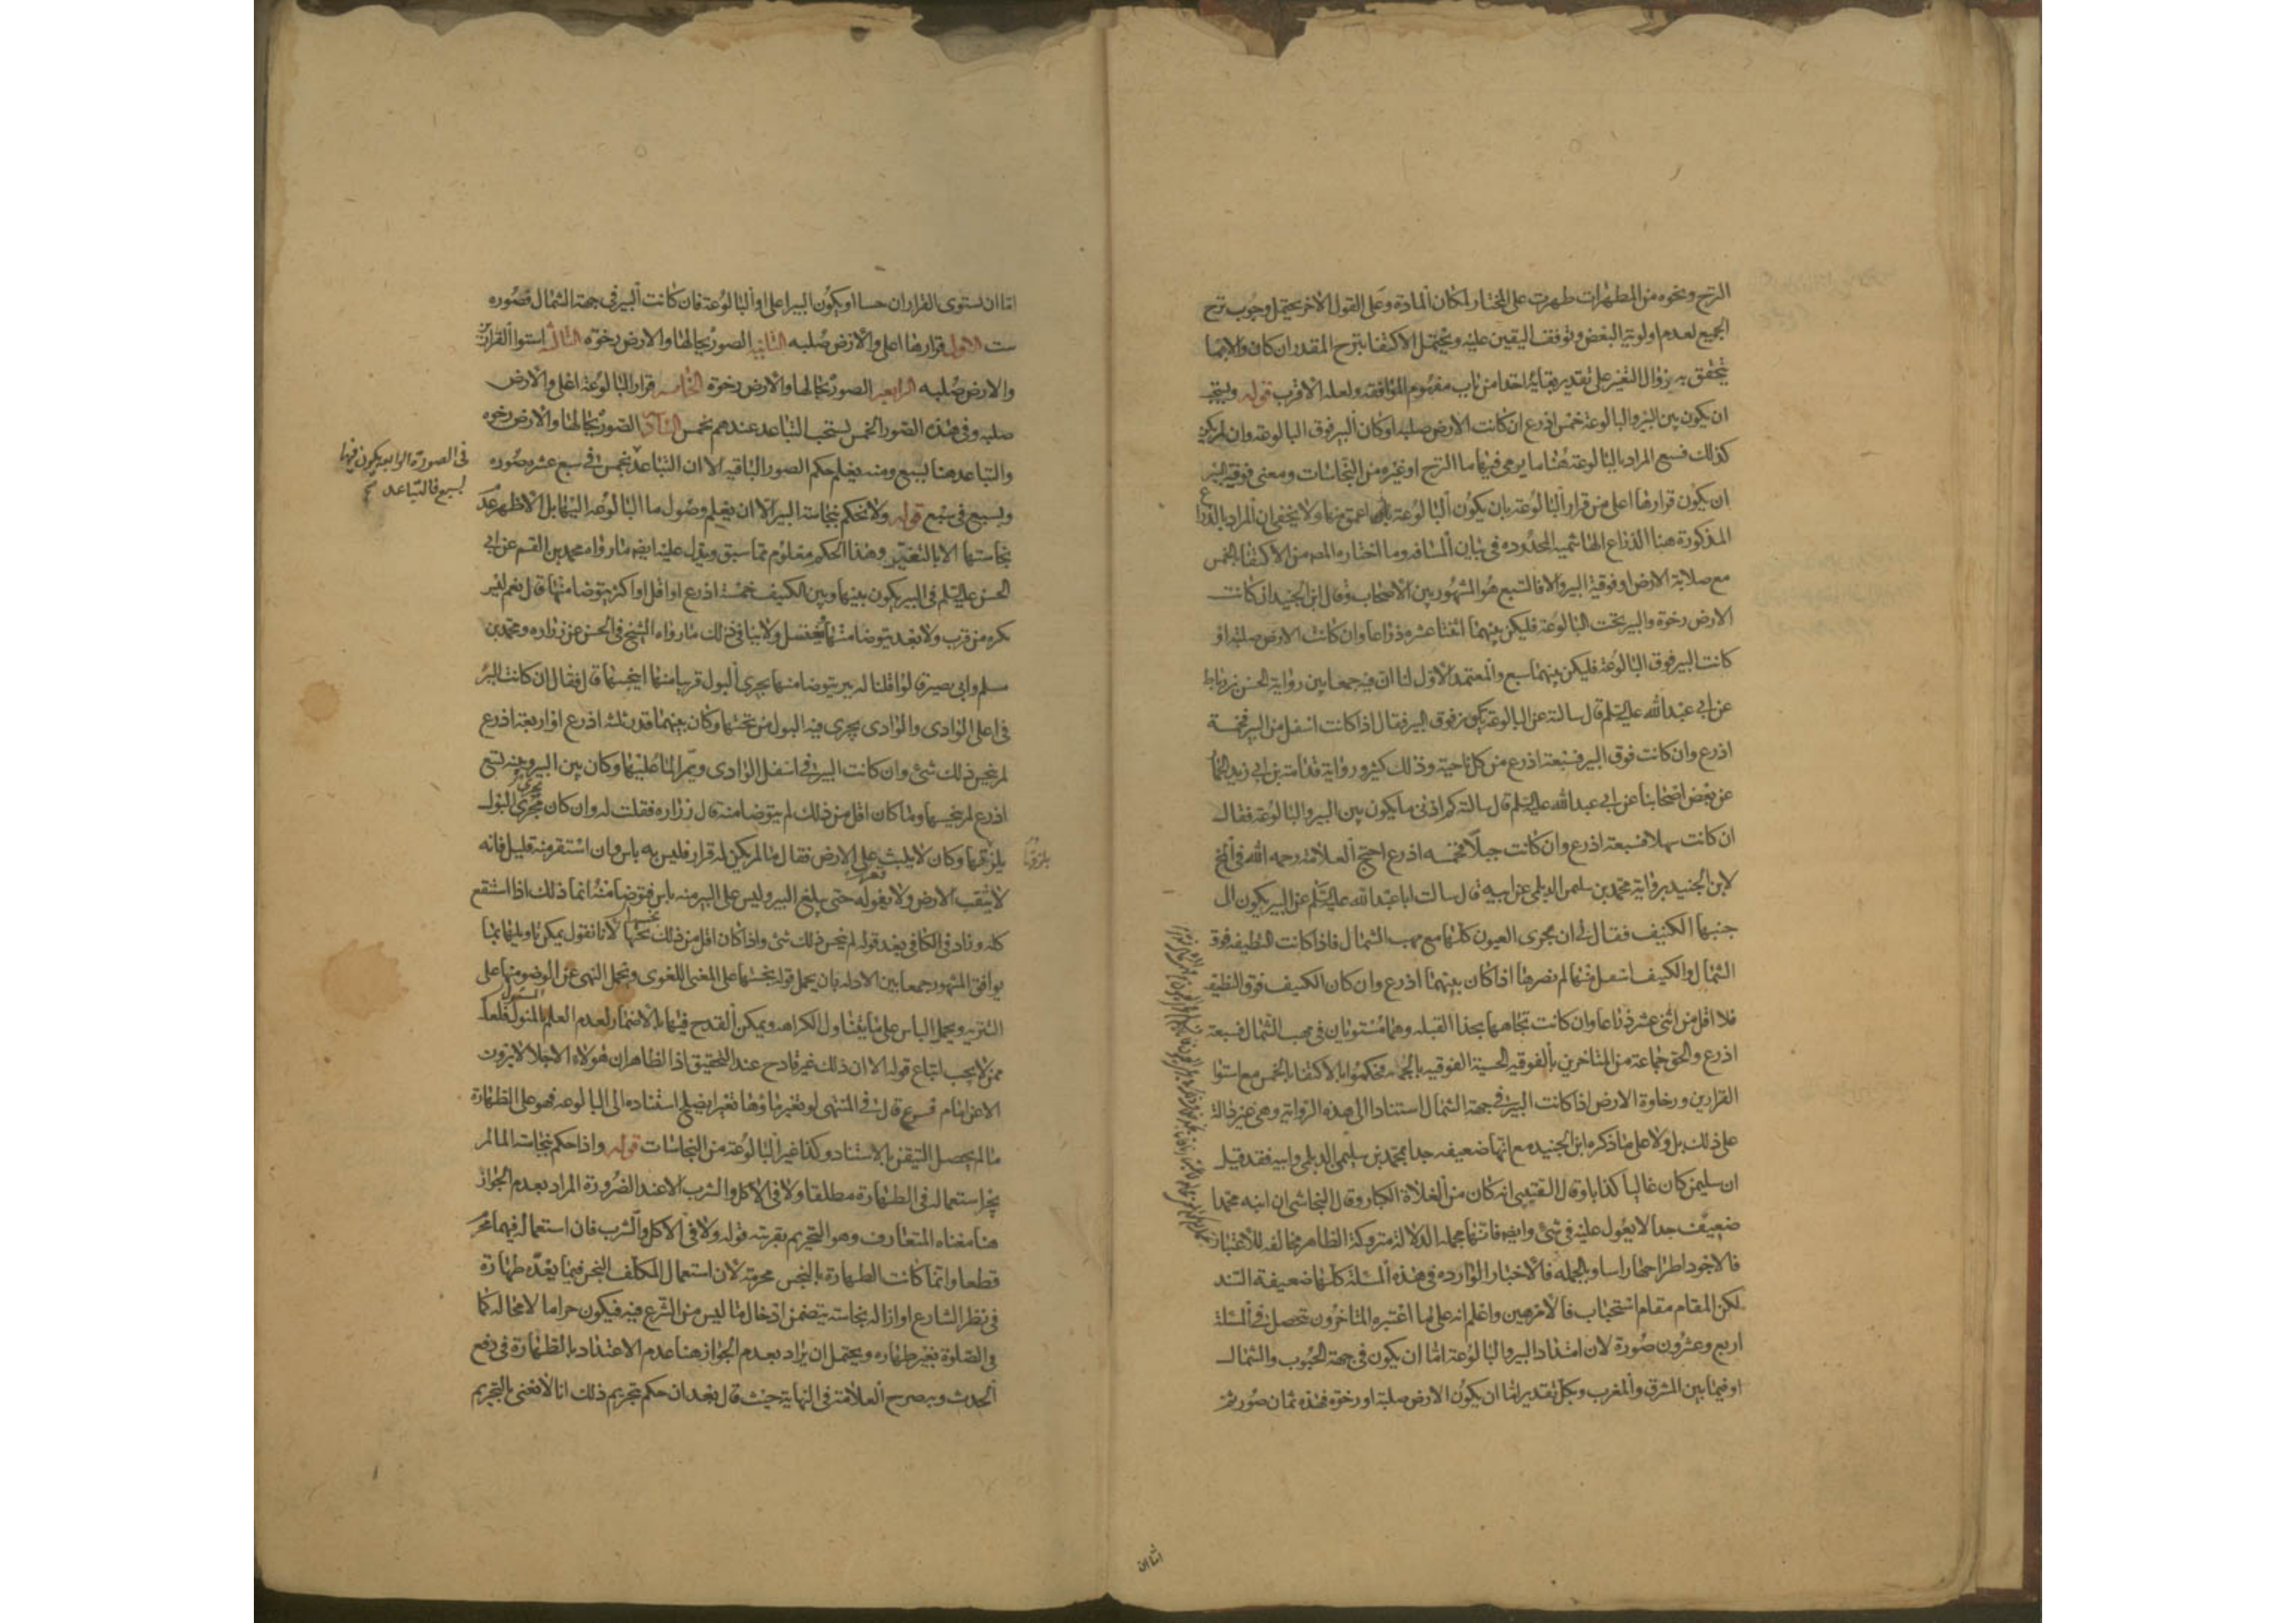 النزح ونحوه من المطهرات طهرت على المختار لمكان المادة وعلى القول الاخر يحتمل وجوب نزح
الجميع لعدم اولوية البعض وتوقف اليقين عليه ويحتمل الاكتفا بنزح المقدر ان كان والا بما
يتحقق به زوال التغير على تقدير بقائه اخذا من باب مفهوم الموافقه ولعله الاقرب قوله ويستحب
ان يكون بين البير والبالوعة خمس اذرع ان كانت الارض صلبه او كان البير فوق البالوعه وان لم يكن
كذلك فسبع المراد بالبالوعة هنا ما يرمى فيها ما النزح او غيره من النجاسات ومعنى فوقية البير
ان يكون قرارها اعلى من قرار البالوعة بان يكون البالوعة اعمق منها ولا يخفى ان المراد بالذراع
المذكورة هنا الذراع الهاشميه المحدوده في بيان المسافه وما اختاره المصـ من الاكتفا بالخمس
مع صلابة الارض او فوقية البير والا فالسبع هو المشهور بين الاصحاب وقال ابن الجنيد ان كانت
الارض رخوة والبير تحت البالوعة فليكن بينهما اثنتا عشره ذراعا وان كانت الارض صلبه او
كانت البير فوق البالوعة فليكن بينهما سبع والمعتمد الاول لنا ان فيه جمعا بين رواية الحسن بن رباط
عن ابي عبد الله عليه السلم قال سالته عن البالوعة يكون فوق البير فقال اذا كانت اسفل من البير فخمسة
اذرع وان كانت فوق البير فسبعة اذرع من كل ناحية وذلك كثير ورواية قدامة بن ابي زيد الحمار
عن بعض اصحابنا عن ابي عبد الله عليه السلم قال سالته كم ادنى ما يكون بين البير والبالوعة فقال
ان كانت سهلا فسبعة اذرع وان كانت جبلا فخمسه اذرع احتج العلامة رحمه الله في المخ
لابن الجنيد برواية محمد بن سليمن الديلمي عن ابيه قال سالت ابا عبد الله عليه السلم عن البير يكون الى
جنبها الكنيف فقال لي ان مجرى العيون كلها مع مهب الشمال فاذا كانت النظيفه فوق
الشمال والكنيف اسفل منها لم يضرها اذا كان بينهما اذرع وان كان الكنيف فوق النظيفه
فلا اقل من اثنى عشر ذراعا وان كانت تجاهها بحذا القبله وهما مستويان في مهب الشمال فسبعة
اذرع والحق جماعة من المتاخرين بالفوقيه الحسية الفوقيه بالجهه فحكموا بالاكتفا بالخمس مع استوا
القرارين ورخاوة الارض اذا كانت البير في جهة الشمال استنادا الى هذه الرواية وهي غير دالة
على ذلك بل ولا على ما ذكره ابن الجنيد مع انها ضعيفه جدا بمحمد بن سليمن الديلمي وابيه فقد قيل
ان سليمن كان غاليا كذابا وقال القتيبي انه كان من الغلاة الكبار وقال النجاشي ان ابنه محمدا
ضعيف جدا لا يعول عليه في شئ وايضا فانها مجمله الدلالة متروكة الظاهر مخالفه للاعتبار
فالاجود اطراحها راسا وبالجمله فالاخبار الوارده في هذه المسئلة كلها ضعيفة السند
لكن المقام مقام استحباب فالامر هين واعلم انه على ما اعتبره المتاخرون تحصل في المسئلة
اربع وعشرون صورة لان امتداد البير والبالوعة اما ان يكون في جهة الجنوب والشمال
او فيما بين المشرق والمغرب وبكل تقدير اما ان يكون الارض صلبة او رخوة فهذه ثمان صور ثم
اما ان
اما ان تستوى القراران حسا او يكون البير اعلى او البالوعة فان كانت البير في جهة الشمال فصوره
ست الاولى قرارها اعلى والارض صلبه الثانيه الصورة بحالها والارض رخوة الثالثه استوا القرارين
والارض صلبه الرابعه الصورة بحالها والارض رخوة الخامسه قرار البالوعة اعلى والارض
صلبه وفي هذه الصور الخمس يستحب التباعد عندهم بخمس السادسه الصورة بحالها والارض رخوه
والتباعد هنا بسبع ومنه يعلم حكم الصور الباقيه الا ان التباعد بخمس في سبع عشره صوره
في الصورة الرابعه يكون فيها
بسبع فالتباعد
وبسبع في سبع قوله ولا نحكم بنجاسة البير الا ان يعلم وصول ما البالوعه اليها بل الاظهر عدم
نجاستها الا بالتغير وهذا الحكم معلوم مما سبق ويدل عليه ايضا ما رواه محمد بن القسم عن ابي
الحسن عليه السلم في البير يكون بينها وبين الكنيف خمسة اذرع او اقل او اكثر يتوضا منها قال نعم ليس
يكره من قرب ولا بعد يتوضا منها ويغتسل ولا ينافي ذلك ما رواه الشيخ في الحسن عن زراره ومحمد بن
مسلم وابي بصير قالوا قلنا له بير يتوضا منها يجرى البول قريبا منها اينجسها قال فقال ان كانت البير
في اعلى الوادى والوادى يجرى فيه البول من تحتها وكان بينهما قدر ثلثه اذرع او اربعة اذرع
لم ينجس ذلك شئ وان كانت البير في اسفل الوادى ويمر الماء عليها وكان بين البير وبينه تسع
اذرع لم ينجسها وما كان اقل من ذلك لم يتوضا منه قال زراره فقلت له وان كان مجرى البول
بلزقها
يلزقها وكان لا يلبث على الارض فقال ما لم يكن له قرار فليس به باس وان استقر منه قليل فانه
لا يثقب الارض ولا يغوله حتى يبلغ البير وليس على البير منه باس فتوضا منه انما ذلك اذا استنقع
كله وزاد في الكافي بعد قوله لم ينجس ذلك شئ واذا كان اقل من ذلك نجسها لانا نقول يمكن تاويلها بما
يوافق المشهور جمعا بين الادله بان يحمل قوله ينجسها على المعنى اللغوى ونحمل النهى عن الوضو منها على
التنزيه ويحمل الباس على ما يتناول الكراهه ويمكن القدح فيها بالاضمار لعدم العلم بالمسئول فلعله
ممن لا يجب اتباع قوله الا ان ذلك غير قادح عند التحقيق اذ الظاهر ان هولاء الاجلا لا يروون
الا عن امام فروع قال في المنتهى لو تغير ماؤها تغيرا يصلح استناده الى البالوعه فهو على الطهارة
ما لم يحصل التيقن بالاستناد وكذا غير البالوعة من النجاسات قوله واذا حكم بنجاسة الما لم
يجز استعماله في الطهارة مطلقا ولا في الاكل والشرب الا عند الضرورة المراد بعدم الجواز
هنا معناه المتعارف وهو التحريم بقرينه قوله ولا في الاكل والشرب فان استعماله فيهما محرم
قطعا وانما كانت الطهارة بالنجس محرمة لان استعمال المكلف النجس فيما يعده طهارة
في نظر الشارع او ازالة نجاسة يتضمن ادخال ما ليس من الشرع فيه فيكون حراما لا محاله كما
في الصلوة بغير طهاره ويحتمل ان يراد بعدم الجواز هنا عدم الاعتداد بالطهارة في رفع
الحدث وبه صرح العلامة في النهاية حيث قال بعد ان حكم بتحريم ذلك انا لا نعنى بالتحريم